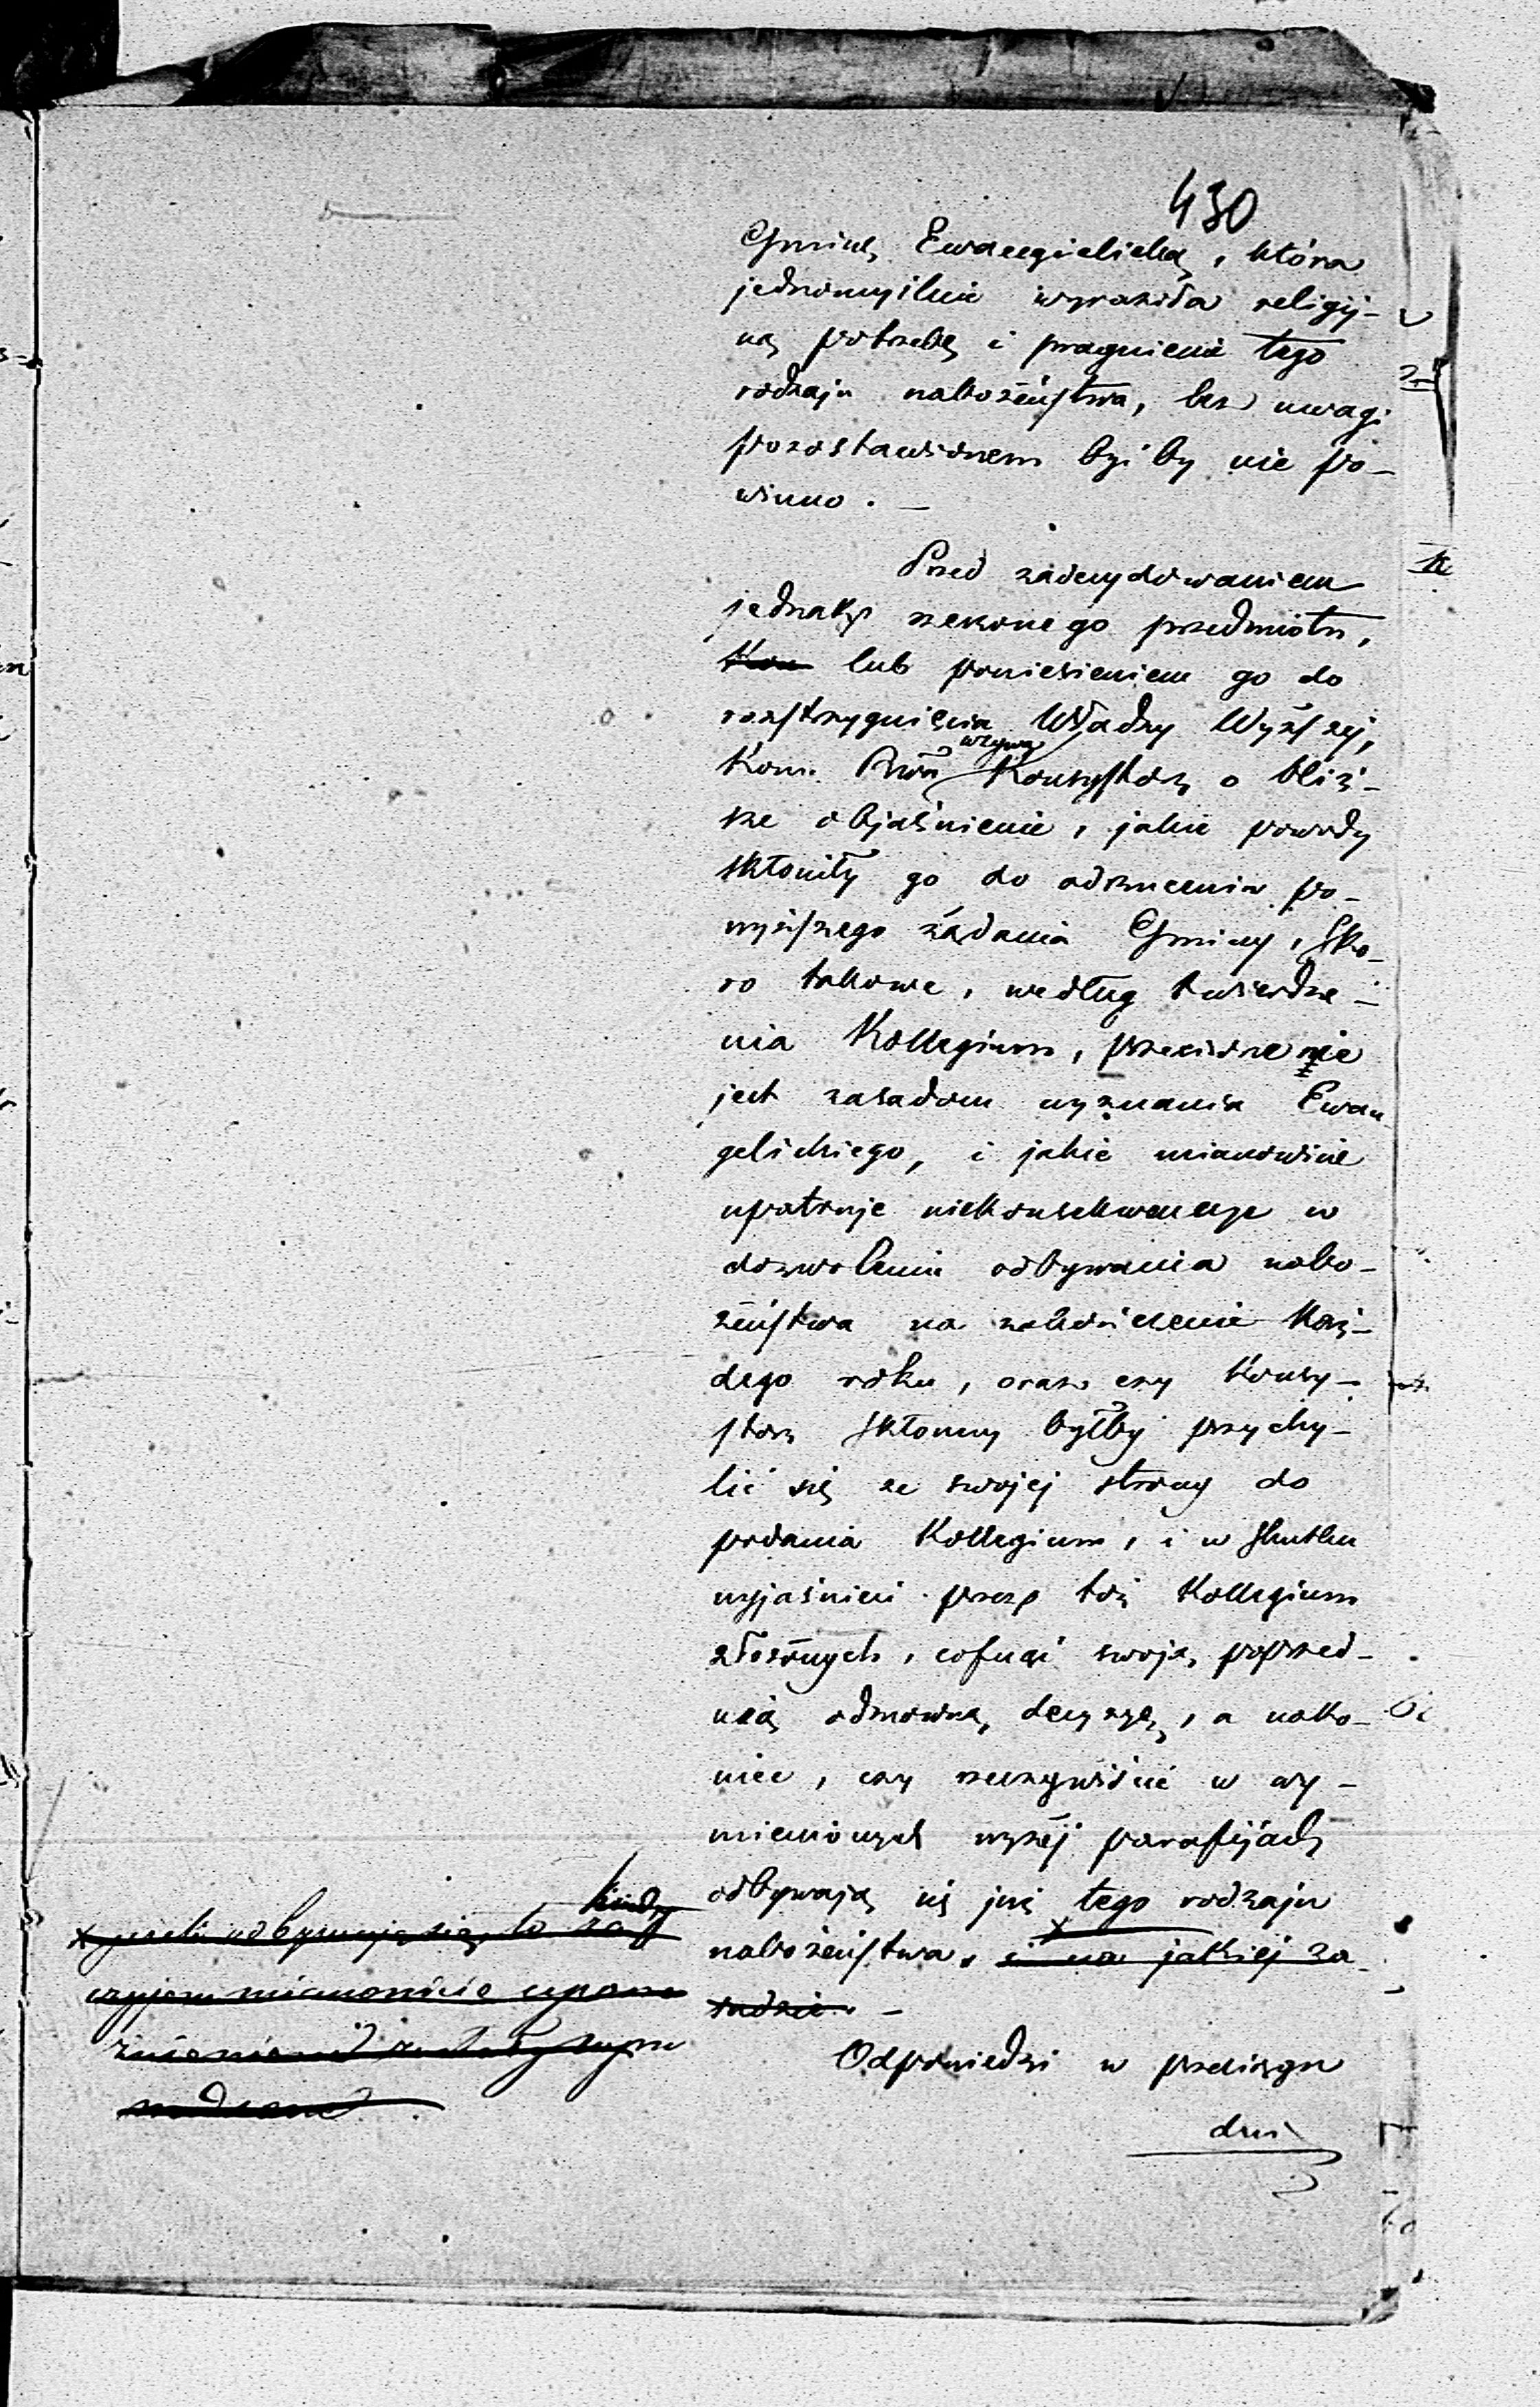 430
Gminę Ewangielicką, która
jednomyślnie wyraziła religij-
ną potrzebę i pragnienie tego
rodzaju nabożeństwa, bez uwagi
pozostawionem być by nie po-
winno. —
Przed zadecydowaniem
jednakże rzeczonego przedmiotu,
Kom lub poniesieniem go do
rozstrzygnięcia Władzy Wyższej,
wzywa
Kom. Rząd. Konsystorz o bliż-
sze objaśnienie, jakie powody
skłoniły go do odrzucenia po-
wyższego żądania Gminy, sko-
ro takowe, według twierdze-
nia Kollegium, przeciwne nie
jest zasadom wyznania Ewan
gelickiego, i jakie mianowicie
upatruje niekonsekwencye w
dozwoleniu odbywania nabo-
żeństwa na zakończenie każ-
dego roku, oraz czy Konsy-
storz skłonny byłby przychy-
lić się ze swojej strony do
podania Kollegium, i w skutku
wyjaśnień przez toż Kollegium
złożonych, cofnąć swoją poprzed-
nią odmowną decyzyę, a nako-
niec, czy rzeczywiście w wy-
mienionych wyżej parafijach
odbywają się już tego rodzaju
nabożeństwa, i na jakiej za-
sadzie. —
Odpowiedzi w przeciągu
dni
kiedy
x jeżeli odbywają się, to za
czyjem mianowicie upowa
żnieniem